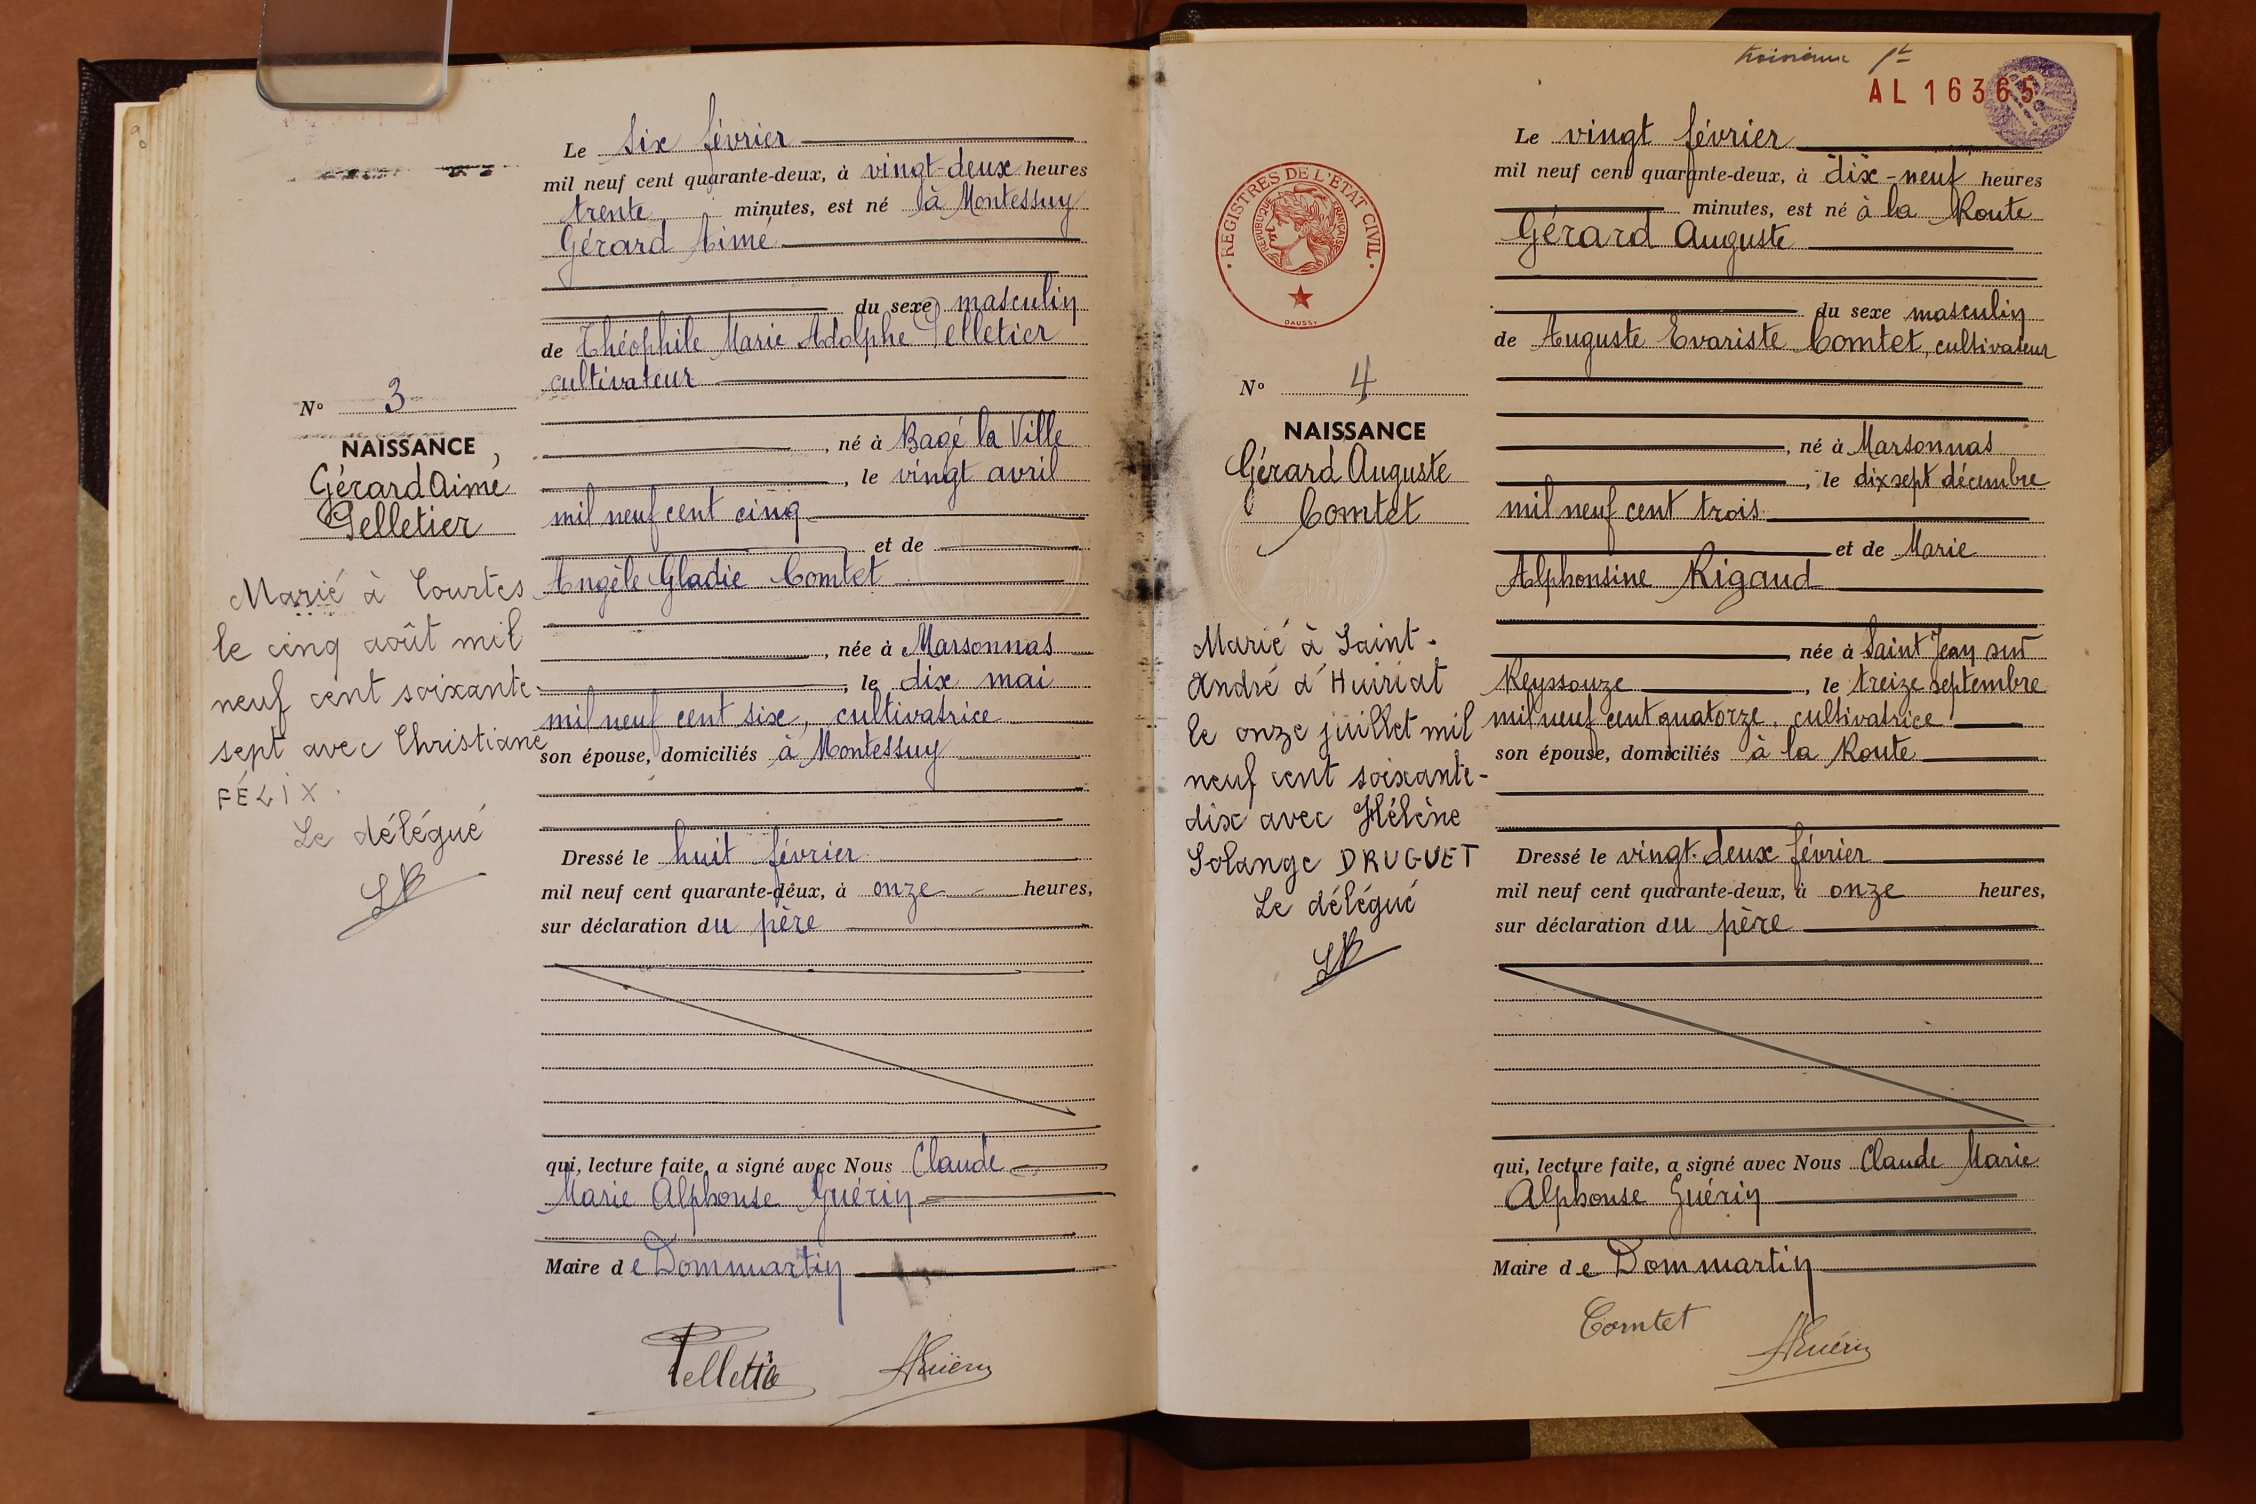 N° 3
NAISSANCE
Gérard Aimé
Pelletier
Marié à Courtes
le cinq août mil
neuf cent soixante-
sept avec Christiane
FÉLIX.
Le délégué
Le six février
mil neuf cent quarante-deux, à vingt-deux heures
trente minutes, est né à Montessuy
Gérard Aimé
du sexe masculin
de Théophile Marie Adolphe Pelletier
cultivateur
, né à Bagé la Ville
, le vingt avril
mil neuf cent cinq
et de
Angèle Gladie Comtet
, née à Marsonnas
, le dix mai
mil neuf cent six, cultivatrice
son épouse, domiciliés à Montessuy
Dressé le huit février
mil neuf cent quarante-deux, à onze heures,
sur déclaration du père
qui, lecture faite, a signé avec Nous Claude
Marie Alphonse Guérin
Maire de Dommartin
Pelletier AGuérin
AL 16365
REGISTRES DE L'ÉTAT CIVIL
RÉPUBLIQUE FRANÇAISE
DAUSSY
N° 4
NAISSANCE
Gérard Auguste
Comtet
Marié à Saint-
André d'Huiriat
le onze juillet mil
neuf cent soixante-
dix avec Hélène
Solange DRUGUET
Le délégué
Le vingt février
mil neuf cent quarante-deux, à dix-neuf heures
minutes, est né à la Route
Gérard Auguste
du sexe masculin
de Auguste Evariste Comtet, cultivateur
, né à Marsonnas
, le dix sept décembre
mil neuf cent trois
et de Marie
Alphonsine Rigaud
, née à Saint Jean sur
Reyssouze, le treize septembre
mil neuf cent quatorze, cultivatrice
son épouse, domiciliés à la Route
Dressé le vingt-deux février
mil neuf cent quarante-deux, à onze heures,
sur déclaration du père
qui, lecture faite, a signé avec Nous Claude Marie
Alphonse Guérin
Maire de Dommartin
Comtet AGuérin